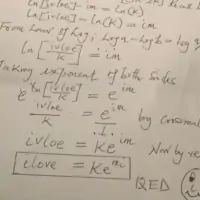 ln[ivloe] - im = ln(k)
ln[ivloe] - ln(k) = im
From Law of Log; Log a - Log b = log a
ln [ivloe/k] = im
Taking exponent of both sides
e^ln[ivloe/k] = e^im
ivloe/k = e^im by
ivloe = ke^im Now by re
ilove = Ke^mi
QED